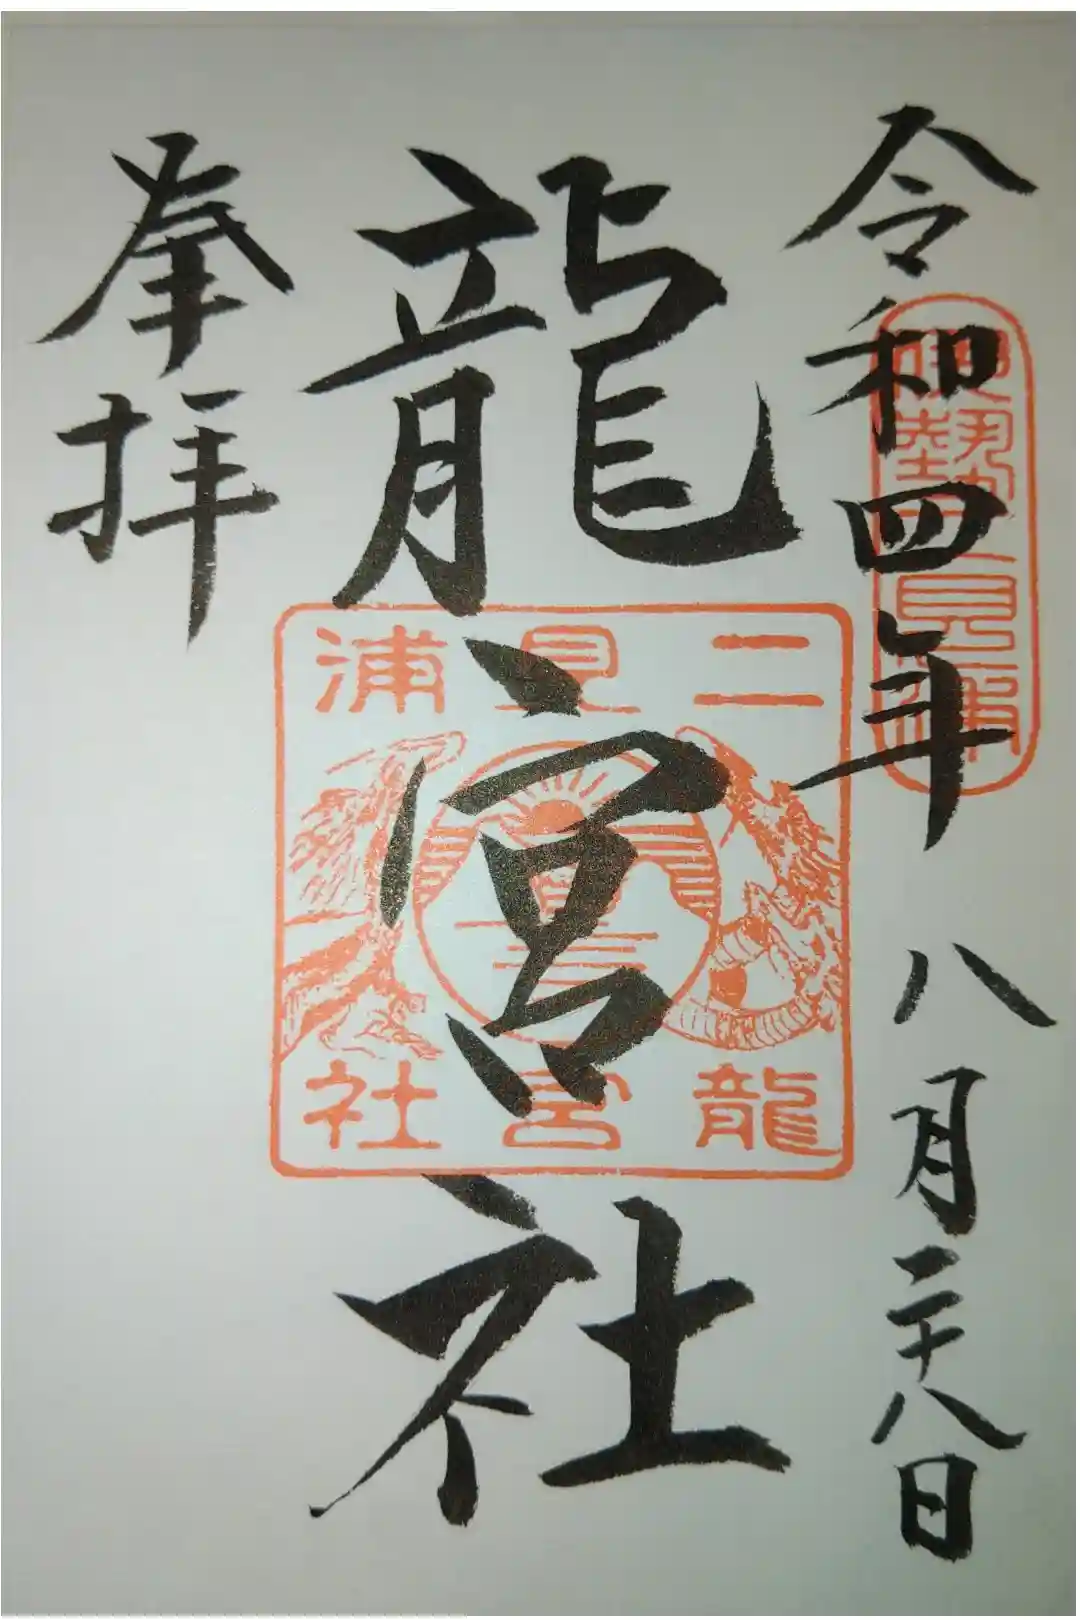 令和四年 八月二十八日
伊勢二見浦
龍宮社
二見浦
龍宮社
奉拝